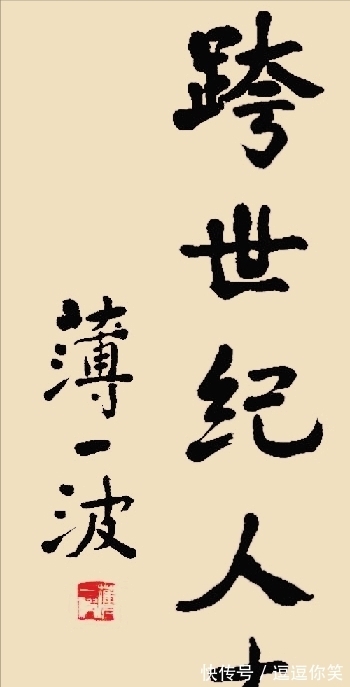 跨世纪人
薄一波
快传号/逗逗你笑